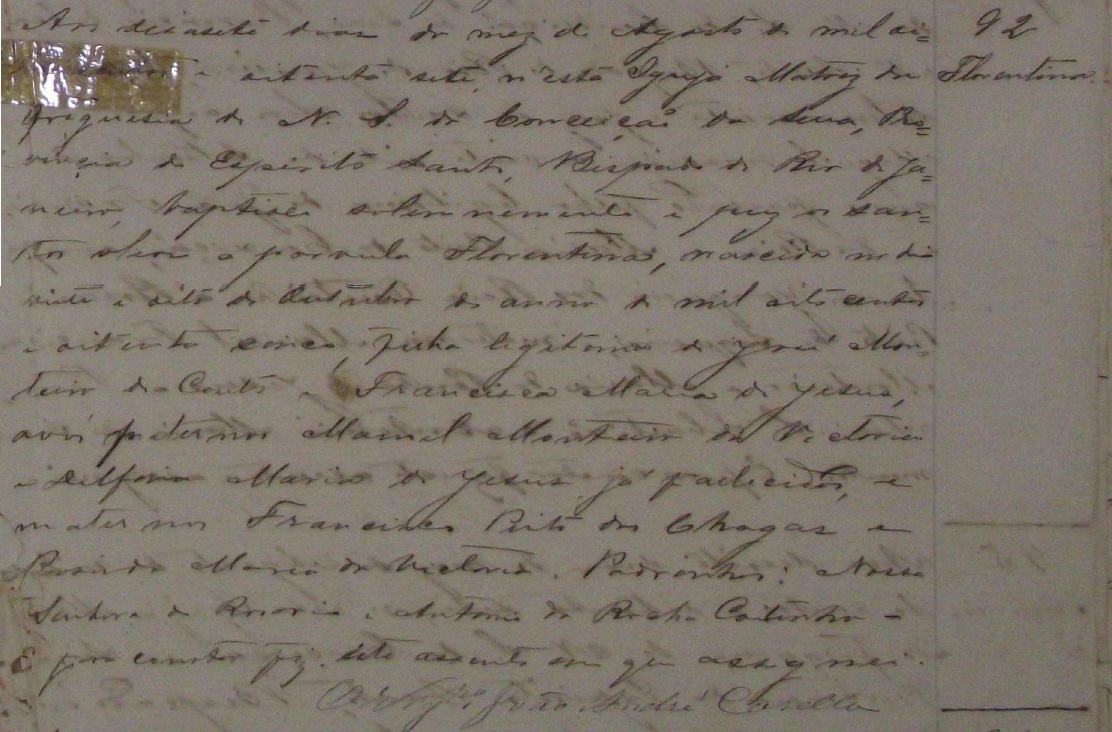 Aos desasete dias do mez de Agosto de mil oi=
92
e oitenta sete, n'esta Igreja Matriz da
Florentina.
freguesia de N. S. da Conceição da Serra, Pro=
vincia do Espirito Santo, Bispado do Rio de Ja=
neiro, baptisei solemnemente e puz os san=
tos oleos a parvula Florentina, nascida no dia
vinte e oito de Outubro do anno de mil oitocentos
e oitenta cinco, filha legitima de José Mon-
teiro do Couto e Francisca Maria de Jesus,
avós paternos Manoel Monteiro da Victoria
e Delfina Maria de Jesus já falecidos, e
maternos Francisco Pinto das Chagas e
Maria da Victoria. Padrinhos: Nossa
Senhora do Rosario e Antonio da Rocha Coitinho -
E para constar fiz este assento em que assignei.
João André Casella